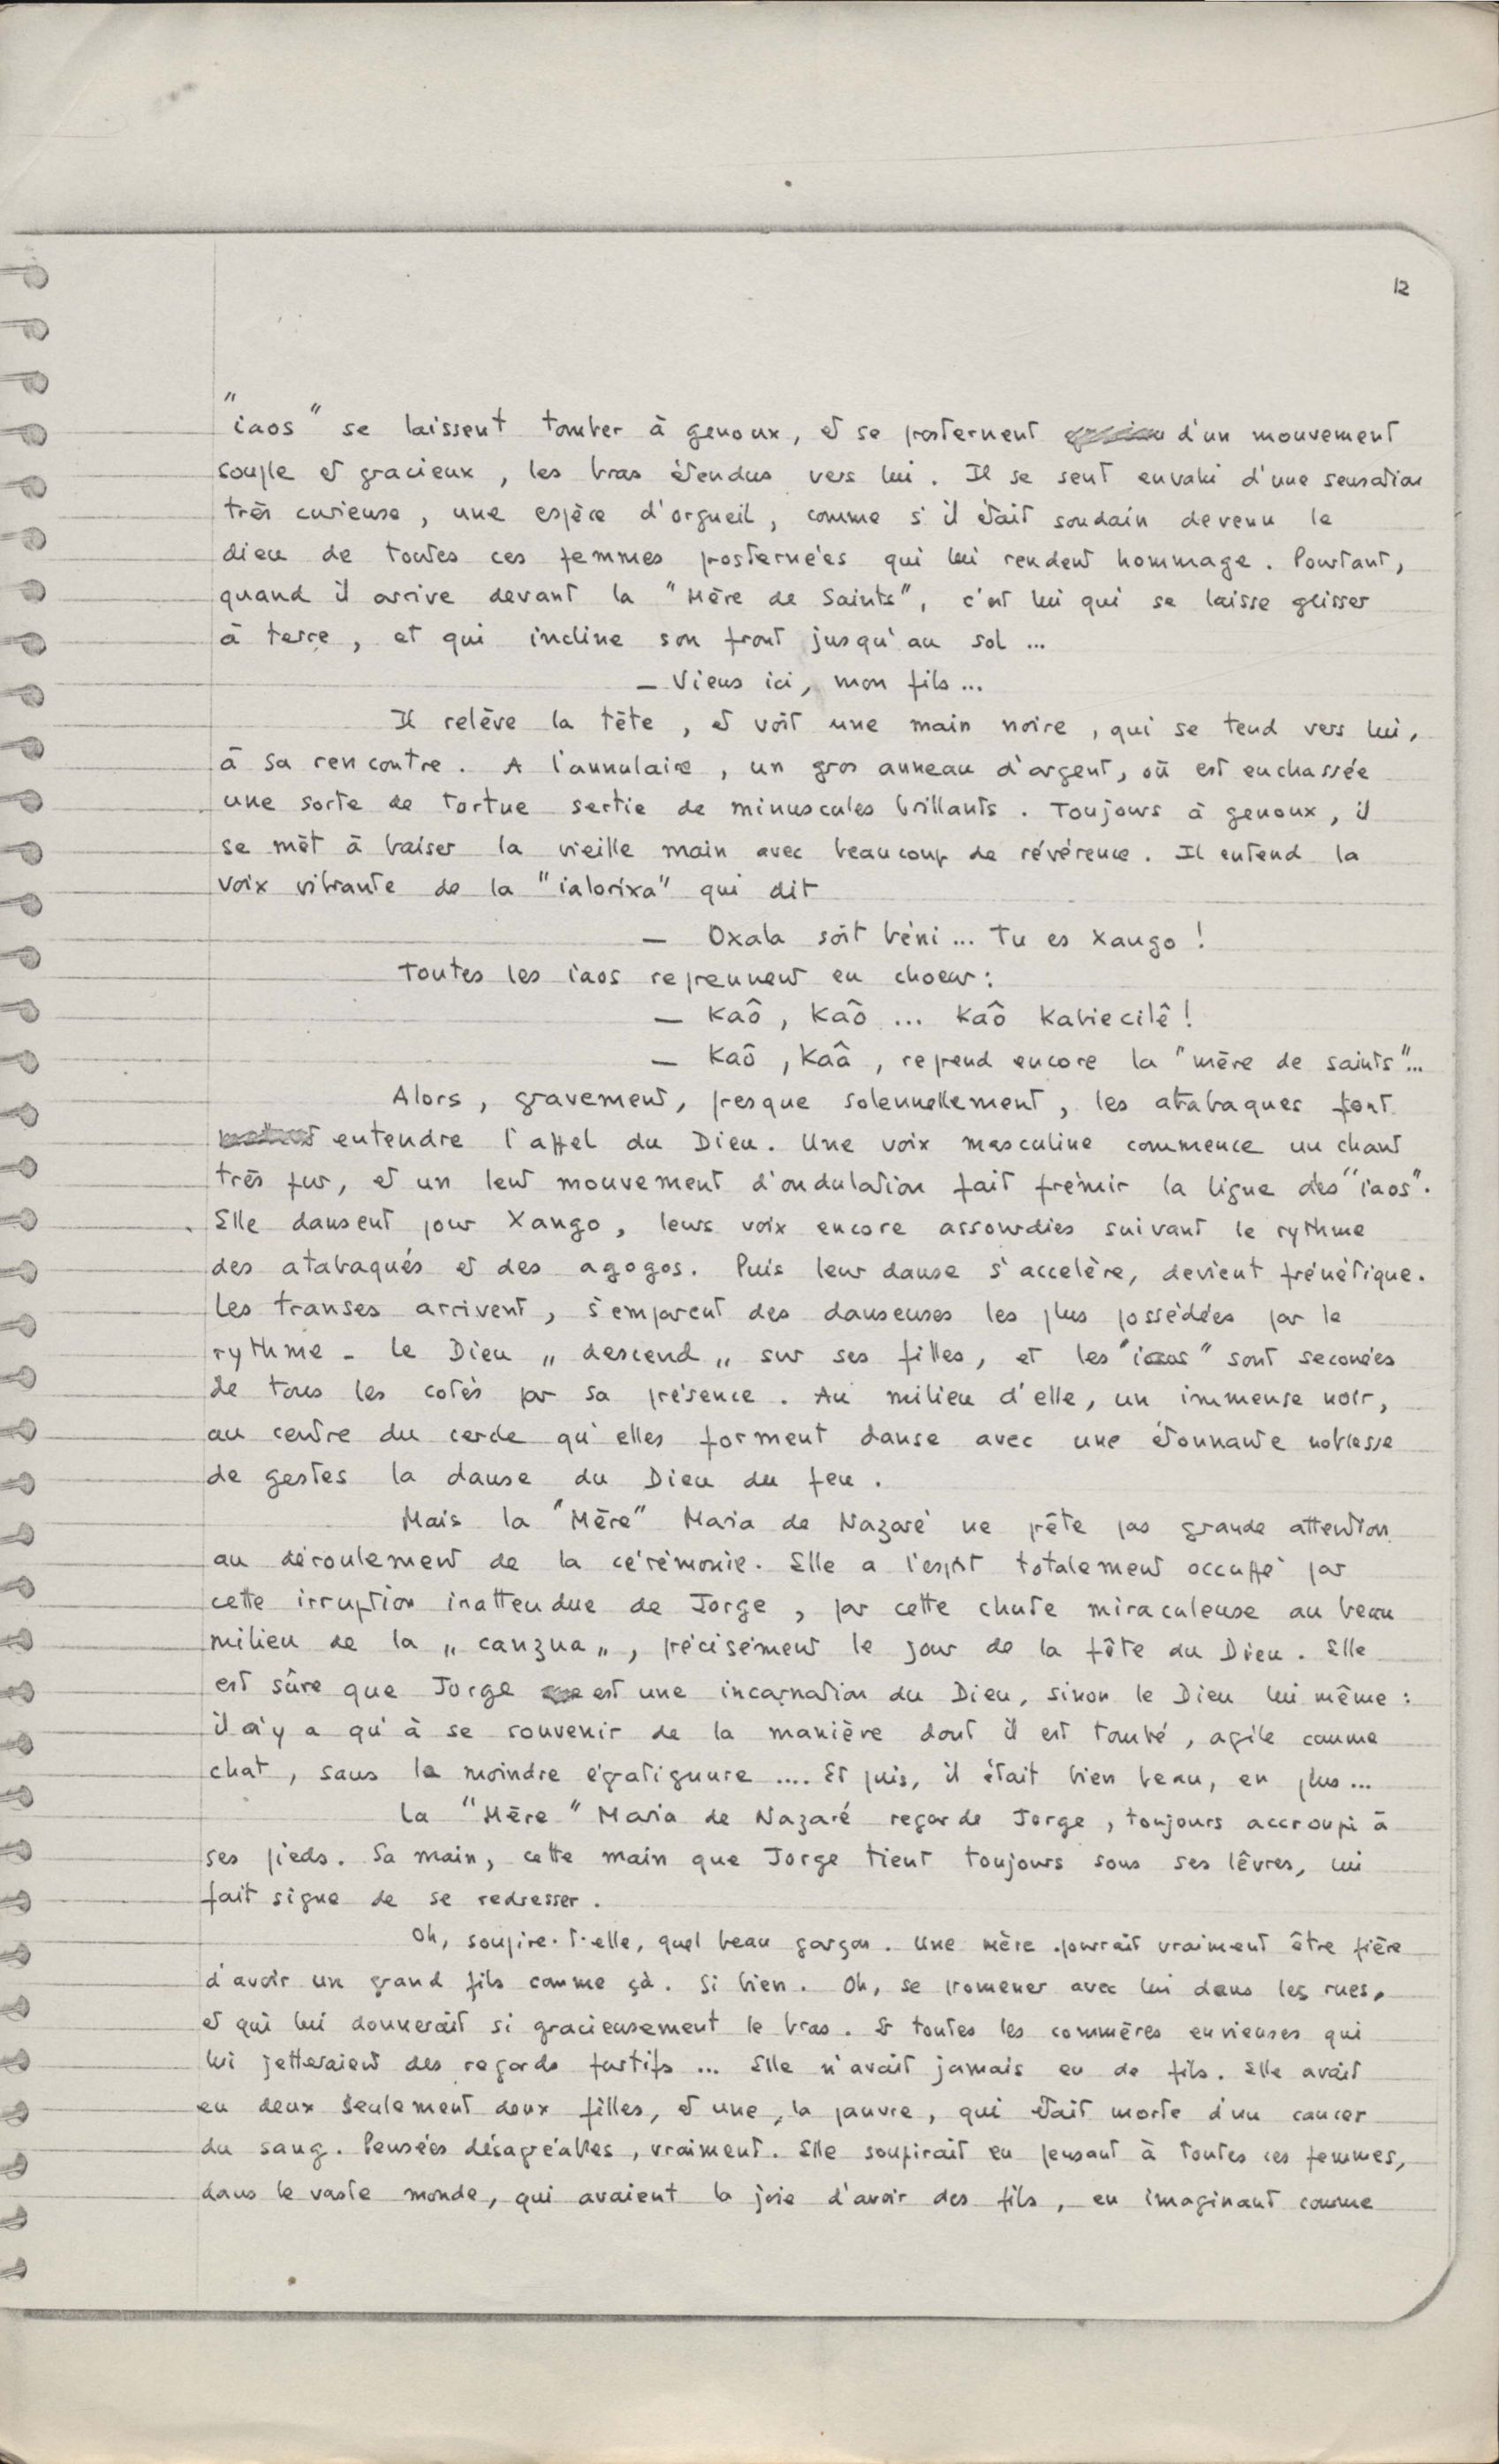 12
"iaos" se laissent tomber à genoux, et se posternent d'un mouvement
souple et gracieux, les bras étendus vers lui. Il se sent envahi d'une sensation
très curieuse, une espèce d'orgueil, comme s'il était soudain devenu le
dieu de toutes ces femmes posternées qui lui rendent hommage. Pourtant,
quand il arrive devant la "Mère de Saints", c'est lui qui se laisse glisser
à terre, et qui incline son front jusqu'au sol ...
— Viens ici, mon fils ...
Il relève la tête, et voit une main noire, qui se tend vers lui,
à sa rencontre. A l'annulaire, un gros anneau d'argent, où est enchassée
une sorte de tortue sertie de minuscules brillants. Toujours à genoux, il
se mêt à baiser la vieille main avec beaucoup de révérence. Il entend la
voix vibrante de la "ialorixa" qui dit
— Oxala soit béni ... Tu es Xango !
Toutes les iaos reprennent en choeur :
— Kaô, Kaô ... Kaô Kabiecilê !
— Kaô, Kaâ, reprend encore la "mère de saints"...
Alors, gravement, presque solennellement, les atabaques font
entendre l'appel du Dieu. Une voix masculine commence un chant
très pur, et un lent mouvement d'ondulation fait frémir la ligne des "iaos".
Elle dansent pour Xango, leurs voix encore assourdies suivant le rythme
des atabaqués et des agogos. Puis leur danse s'accelère, devient frénétique.
Les transes arrivent, s'emparent des danseuses les plus possédées par le
rythme - le Dieu „ descend „ sur ses filles, et les "iaos" sont secouées
de tous les cotés par sa présence. Au milieu d'elle, un immense noir,
au centre du cercle qu'elles forment danse avec une étonnante noblesse
de gestes la danse du Dieu du feu.
Mais la "Mère" Maria de Nazaré ne prête pas grande attention
au déroulement de la cérémonie. Elle a l'esprit totalement occuppé par
cette irruption inattendue de Jorge, par cette chute miraculeuse au beau
milieu de la „ canzua „, précisément le jour de la fête du Dieu. Elle
est sûre que Jorge est une incarnation du Dieu, sinon le Dieu lui même :
il n'y a qu'à se souvenir de la manière dont il est tombé, agile comme
chat, sans la moindre égratignure .... Et puis, il était bien beau, en plus ...
La "Mère" Maria de Nazaré regarde Jorge, toujours accroupi à
ses pieds. Sa main, cette main que Jorge tient toujours sous ses lêvres, lui
fait signe de se redresser.
Oh, soupire-t-elle, quel beau garçon. Une mère pourrait vraiment être fière
d'avoir un grand fils comme çà. Si bien. Oh, se promener avec lui dans les rues,
et qui lui donnerait si gracieusement le bras. Et toutes les commères envieuses qui
lui jetteraient des regards furtifs ... Elle n'avait jamais eu de fils. Elle avait
eu deux seulement deux filles, et une, la pauvre, qui était morte d'un cancer
du sang. Pensées désagréables, vraiment. Elle soupirait en pensant à toutes ces femmes,
dans le vaste monde, qui avaient la joie d'avoir des fils, en imaginant comme